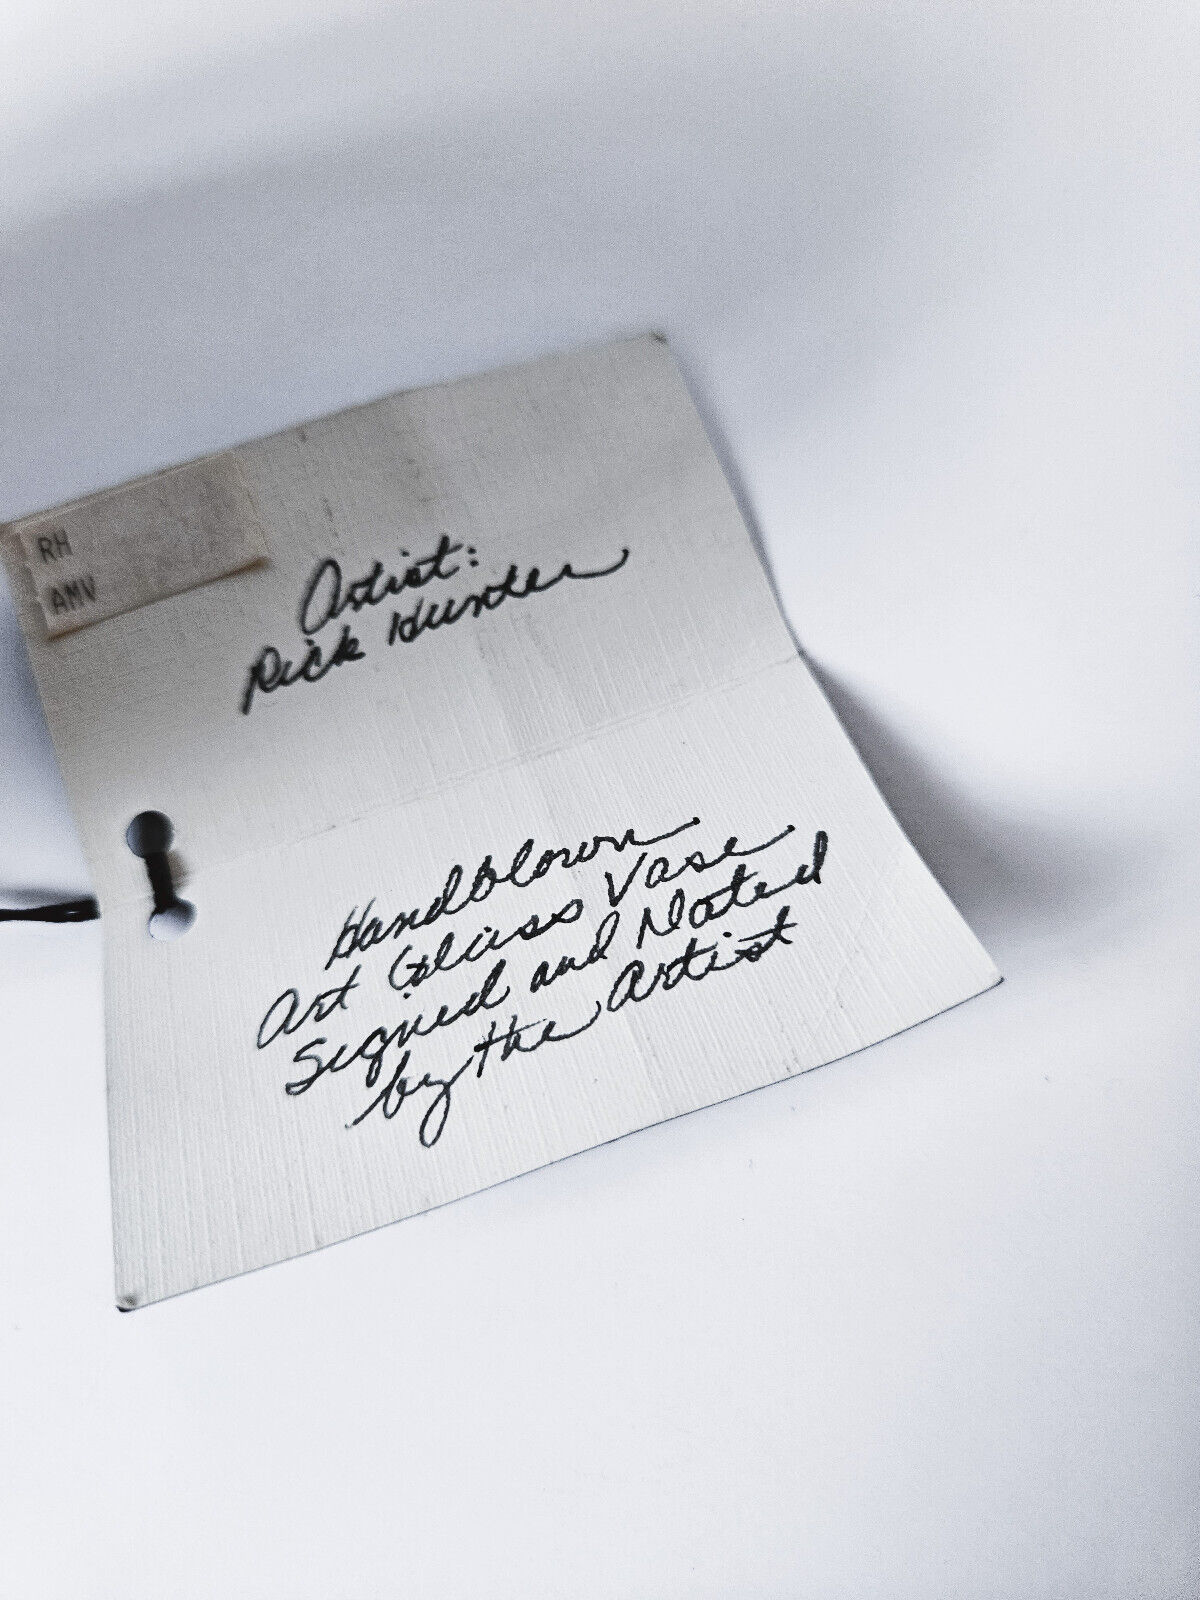 RH
AMV
Artist:
Rick Hunter
Handblown
Art Glass Vase
Signed and Dated
by the Artist